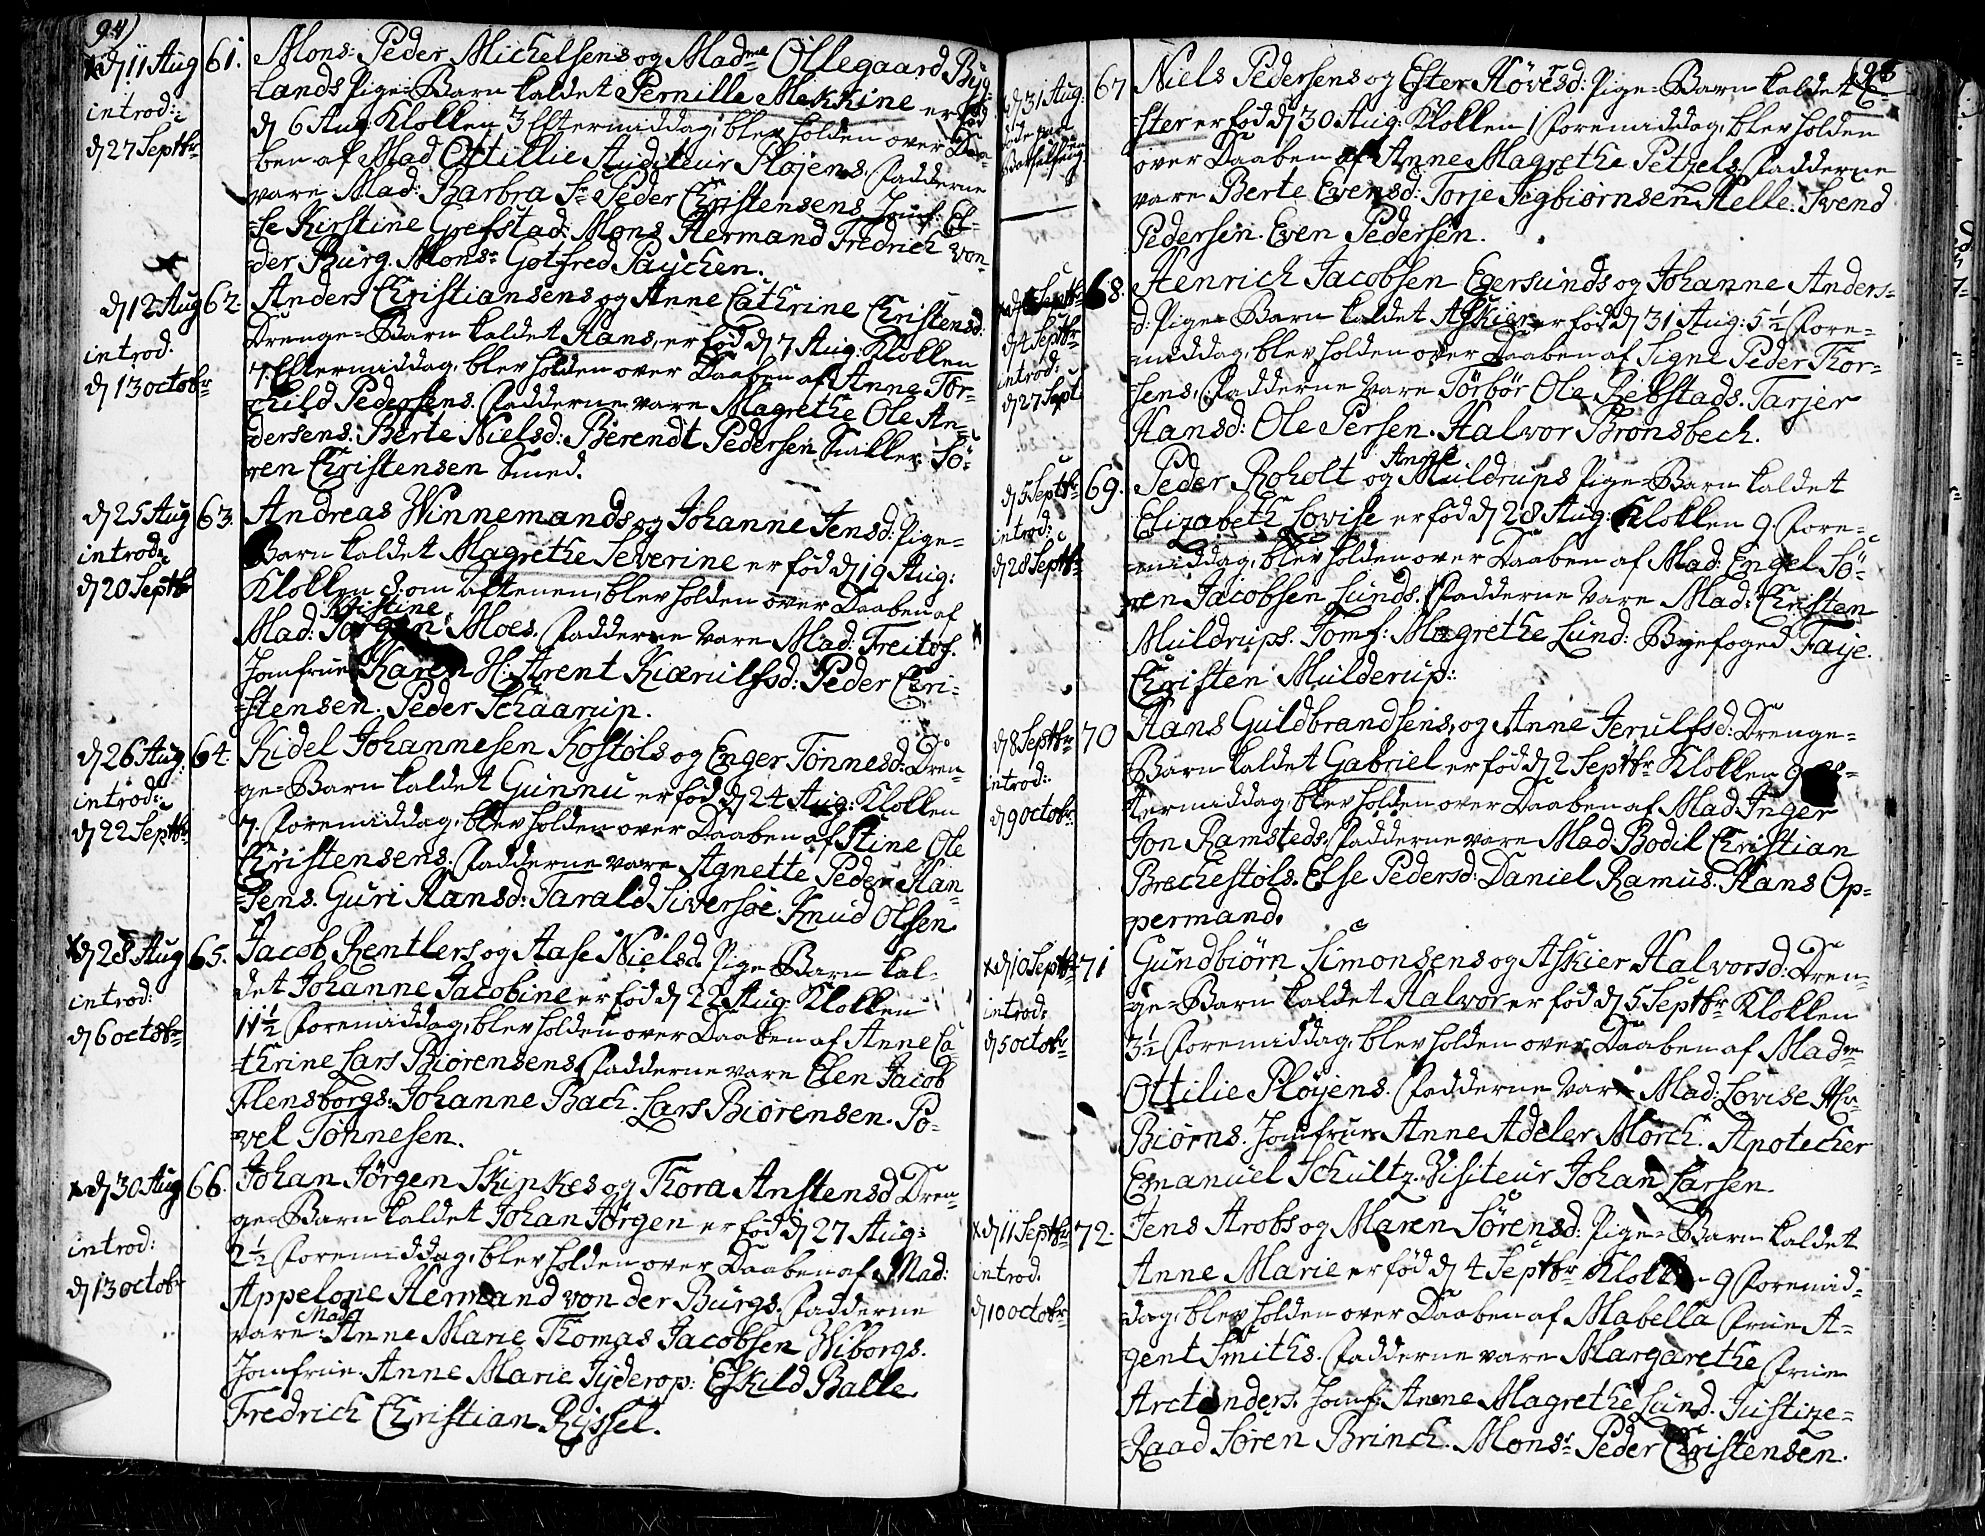 94)
d 11 Aug 61. Mons: Peder Michelsens og Mad:me Ollegaard Byg:
introd: lands Pige-Barn kaldet Pernille Mekkine er fød
d 6 Aug: Klokken 3 Eftermiddag, blev holden over Daa-
d 27 Septbr ben af Mad Ottillie Auditeur Pløjens. Fadderne
vare Mad: Barbra Sr Peder Christensens Jomf: El-
se Kirstine Grefstad. Mons Hermand Fredrich von
der Burg. Monsr Gotfred Paÿchen.
d 12 Aug 62. Anders Christiansens og Anne Cathrine Christensd:
Drenge-Barn kaldet Hans, er fød d 7 Aug: Klokken
introd. 7. Eftermiddag, blev holden over Daaben af Anne Tor-
d 13 octobr child Pedersens. Fadderne vare Magrethe Ole An-
dersens. Berte Nielsd: Berendt Pedersen Snikker. Sö-
ren Christensen Smed.
d 25 Aug 63. Andreas Winnemands og Johanne Jensd: Pige-
introd: Barn kaldet Magrethe Severine er fød d 19 Aug:
d 20 Septbr Klokken 8. om Aftenen, blev holden over Daaben af
Kristine
Mad: Jørgen Moes. Fadderne vare Mad: Freitof.
Jomfrue Karen H: Arent Kiærulfsd: Peder Chri-
stensen. Peder Schaarup.
d 26 Aug: 64. Kidel Johannesen Kostöls og Enger Tönnesd: Dren-
introd: ge-Barn kaldet Gunnu er fød d 24 Aug: Klokken
d 22 Septbr 7. Foremiddag, blev holden over Daaben af Stine Ole
Christensens. Fadderne vare Agnette Peder Han-
sens. Guri Hansd: Tarald Siversøe. Knud Olsen
d 28 Aug 65. Jacob Rentlers og Aase Nielsd. Pige-Barn kal-
introd: det Johanne Jacobine er fød d 22 Aug: Klokken
d 6 octobr 11½ Foremiddag, blev holden over Daaben af Anne Ca-
thrine Lars Biörensens. Fadderne vare Elen Jacob
Flensborgs. Johanne Bach. Lars Biörensen. Po-
vel Tönnesen.
d 30 Aug 66. Johan Jörgen Skinkes og Thora Anstensd Dren-
introd: ge-Barn kaldet Johan Jörgen er fød d 27 Aug:
d 13 octobr 2½ Foremiddag, blev holden over Daaben af Mad:
Appelone Hermand von der Burgs. Fadderne
Mad
vare: Anne Marie Thomas Jacobsen Wiborgs.
Jomfrue Anne Marie Tyderop: Eskild Balle
Fredrich Christian Ryssel.
d 31 Aug: 67. Niels Pedersens og Ester Hövesd: Pige-Barn kaldet E-
ster er fød d 30 Aug: Klokken 1 Foremiddag, blev holden
over Daaben af Anne Magrethe Petzels. Fadderne
vare Berte Evensd: Torje Sigbiørnsen Helle. Svend
Pedersen. Even Pedersen.
68. Henrich Jacobsen Egersunds og Johanne Anders-
d 4 Septbr d: Pige-Barn kaldet Askier er fød d 31 Aug: 5½ Fore-
introd: middag, blev holden over Daaben af Signe Peder Thor-
d 27 Sept sens. Fadderne vare Törbör Ole Rebstads. Tarjer
Hansd: Ole Persen. Halvor Bronsbech.
Anne
d 5 Septbr 69. Peder Roholt og Muldrups Pige-Barn kaldet
introd: Elizabeth Lovise er fød d 28 Aug: Klokken 9. Fore-
d 28 Septbr middag, blev holden over Daaben af Mad: Engel Sö-
ren Jacobsen Lunds. Fadderne vare Mad: Christen
Muldrups. Jomf: Magrethe Lund: Byefoged Faije.
Christen Mulderup:
d 8 Septbr 70 Hans Guldbrandsens, og Anne Jerulfsd: Drenge-
introd: Barn kaldet Gabriel er fød d 2 Septbr Klokken 9
d 9 octobr termiddag, blev holden over Daaben af Mad Inger
Jon Ramsteds. Fadderne vare Mad Bodil Christian
Brechestöls. Else Pedersd: Daniel Ramus. Hans Op-
permand.
d 10 Septbr 71 Gundbiörn Simonsens og Askier Halvorsd: Dren-
introd: ge-Barn kaldet Halvor er fød d 5 Septbr Klokken
d 5 octobr 3½ Foremiddag, blev holden over Daaben af Madme
Ottilie Pløyens. Fadderne vare Mad: Lovise As-
Biörns. Jomfrue Anne Adeler Morch. Apotecher
Emanuel Schultz. Visiteur Johan Larsen.
d 11 Septbr 72. Jens Arobs og Maren Sörensd: Pige-Barn kaldet
introd. Anne Marie er fød d 4 Septbr Klokken 9 Foremid-
d 10 octobr dag, blev holden over Daaben af Mabella Frue A-
gent Smiths. Fadderne vare Margarethe Frue
Arctanders. Jomf: Anne Magrethe Lund. Justize-
Raad Sören Brinch. Monsr Peder Christensen.